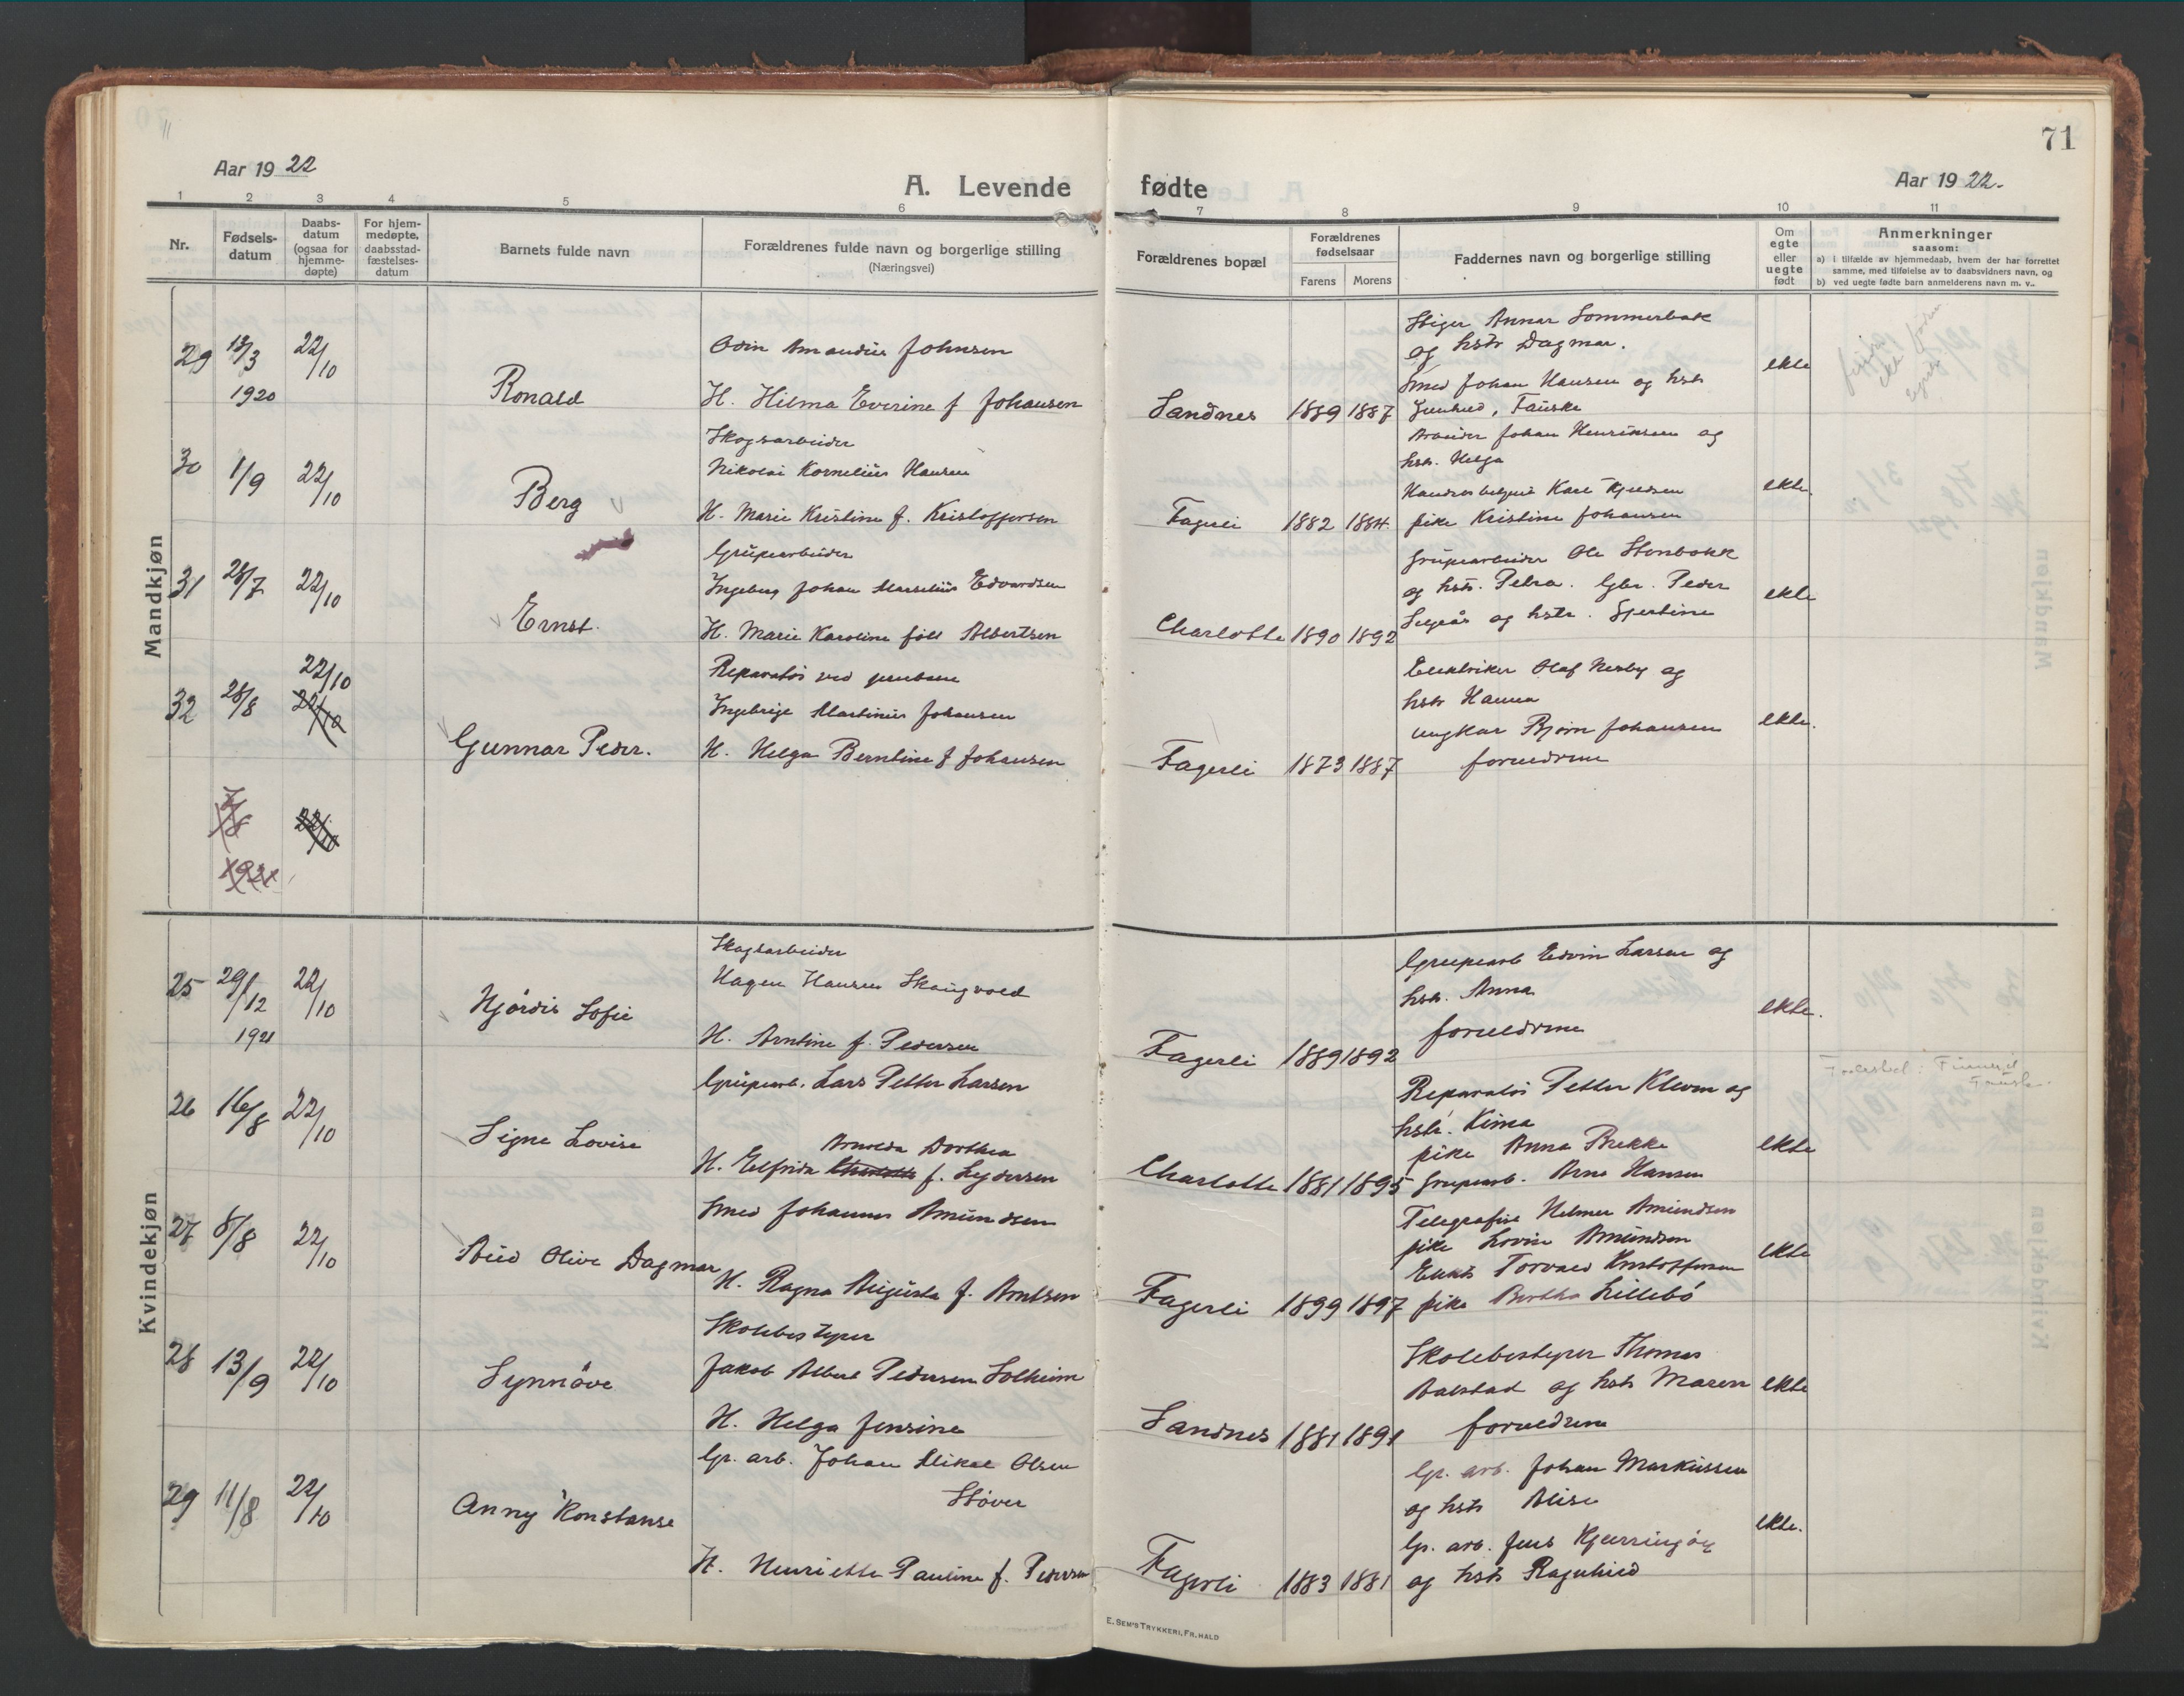 71
Aar 19 22
A. Levende fødte
Aar 19 22.
1 2 3 4 5 6 7 8 9 10 11
Nr.
Fødsels-
datum
Daabs-
datum
(ogsaa for
hjemme-
døpte)
For hjem-
medøpte,
daabsstad-
fæstelses-
datum
Barnets fulde navn
Forældrenes fulde navn og borgerlige stilling
(Næringsvei)
Forældrenes bopæl
Forældrenes
fødselsaar
Farens Morens
Faddernes navn og borgerlige stilling
Om
egte
eller
uegte
født
Anmerkninger
saasom:
a) i tilfælde av hjemmedaab, hvem der har forrettet
samme, med tilføielse av to daabsvidners navn, og
b) ved uegte fødte barn anmelderens navn m. v..
Mandkjøn
29 13/3 1920 22/10
Ronald
Odin Amandus Johnsen
H. Hilma Everine f Johansen
Sandnes 1889 1887
Stiger Annar Sommerbak
og hstr Dagmar.
Smed Johan Hansen og hstr
Gunhild, Fauske
ekte
30 1/9 22/10
Berg
Skogsarbeider
Nikolai Kornelius Hansen
H. Marie Kristine f. Kristoffersen
Fagerli 1882 1884.
Arbeider Johan Henriksen og
hstr. Helga
Karl Kjeldsen
pike Kristine Johansen
ekte.
31 28/7 22/10
Ernst.
Grubearbeider
Johan Edvardsen
H. Marie Karoline föd Albertsen
Charlotte 1890 1892
Grubearbeider Ole Stenbakk
og hstr. Petra. Gbr. Peder
og hstr.
ekte
32 28/8 22/10
22/10
Gunnar Peder.
Reparatör ved jernbane
Martinus Johansen
H. Helga Berntine f Johansen
Fagerli 1873 1887
Elektriker Olaf Nesby og
hstr Hanna
ungkar Bjørn Johansen
foreldrene
ekte.
7/8 22/10
1921
Kvindekjøn
25 29/12 1921 22/10
Hjördis Sofie
Skogsarbeider
Hagen Hansen Skaugvold
H. Arntine f. Pedersen
Fagerli 1889 1892
Grubearb Edvin Larsen og
hstr. Anna
foreldrene
ekte.
26 16/8 22/10
Signe Lovise
Grubearb. Lars Petter Larsen
Arnolda Dorthea
H. Elfrida f. Lydersen
Charlotte 1881 1895
Reparatör Petter Kleven og
hstr. Kima
pike Anna Brekke
Grubearb. Arne Hansen
ekte
27 8/8 22/10
Aud Olive Dagmar
Smed Johannes Amundsen
H. Ragna Augusta f. Arntsen
Fagerli 1899 1897
Telegrafist Helmer Amundsen
pike Lovise Amundsen
Torvald Kristoffersen
pike Bertha Lillebö
ekte
28 13/9 22/10
Synnöve
Skolebestyrer
Jakob Albert Pedersen Solheim
H. Helga Jensine
Sandnes 1881 1891
Skolebestyrer Thomas
Balstad og hstr Maren
foreldrene
ekte
29 11/8 22/10
Anny Konstanse
Gr. arb. Johan Mikal Olsen
Stöver
H. Henriette Pauline f. Pedersen
Fagerli 1883 1881
Gr. arb. Johan Markussen
og hstr Alise
Gr. arb. Jens Kjerringöy
og hstr Ragnhild
ekte.
E. SEM'S TRYKKERI, FR.HALD